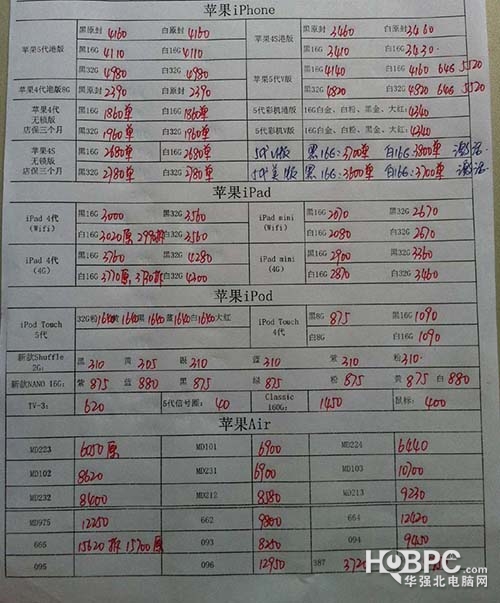 苹果iPhone
苹果5代港版 黑原封 4160 白原封 4160 苹果4S港版 黑原封 3460 白原封 3460
黑16G 4110 白16G 4110 黑16G 3410 白16G 3430
黑32G 4980 白32G 4980 苹果5代V版 黑16G 4140 白16G 4160 64G 5520
苹果4代港版8G 黑原封 2390 白原封 2390 黑32G 4820 白32G 4820 64G 5520
苹果4代 无锁版 店保三个月 黑16G 1860单 白16G 1860单 5代彩机港版 16G白金、白粉、黑金、大红: 4340
黑32G 1960单 白32G 1960单 5代彩机V版 16G白金、白粉、黑金、大红: 4340
苹果4S 无锁版 店保三个月 黑16G 2680单 白16G 2680单 黑16G:3700单 白16G 3800单
黑32G 2780单 白32G 2780单 黑16G:3600单 白16G 3700单
苹果iPad
iPad 4代 (Wifi) 黑16G 3000 黑32G 3560 iPad mini (Wifi) 黑16G 2070 黑32G 2670
白16G 3020原 白32G 3560 白16G 2080 白32G 2670
iPad 4代 (4G) 黑16G 3760 黑32G 4280 iPad mini (4G) 黑16G 2900 黑32G 3360
白16G 3770原 白32G 4300 白16G 2870 白32G 3460
苹果iPod
iPod Touch 5代 32G粉1640 黄1640 黑1640 蓝1640 白1640 大红 iPod Touch 4代 黑8G 875 黑16G 1090
白8G 875 白16G 1090
新款Shuffle 2G: 黑 310 黄 305 银 310 蓝 310 紫 310 粉 310
新款NANO 16G: 紫 875 蓝 880 黑 875 绿 875 粉 875 黄 875 白 880
TV-3: 620 5代信号圈: 40 Classic 160G: 1450 鼠标: 400
苹果Air
MD223 6050原 MD101 6900 MD224 6440
MD102 8620 MD231 6900 MD103 10700
MD232 8400 MD212 8580 MD213 9230
MD975 12250 662 9800 664 12420
665 15620拆 15700原 093 8250 094 9450
095 096 12950 387
HQBPC.com
华强北电脑网